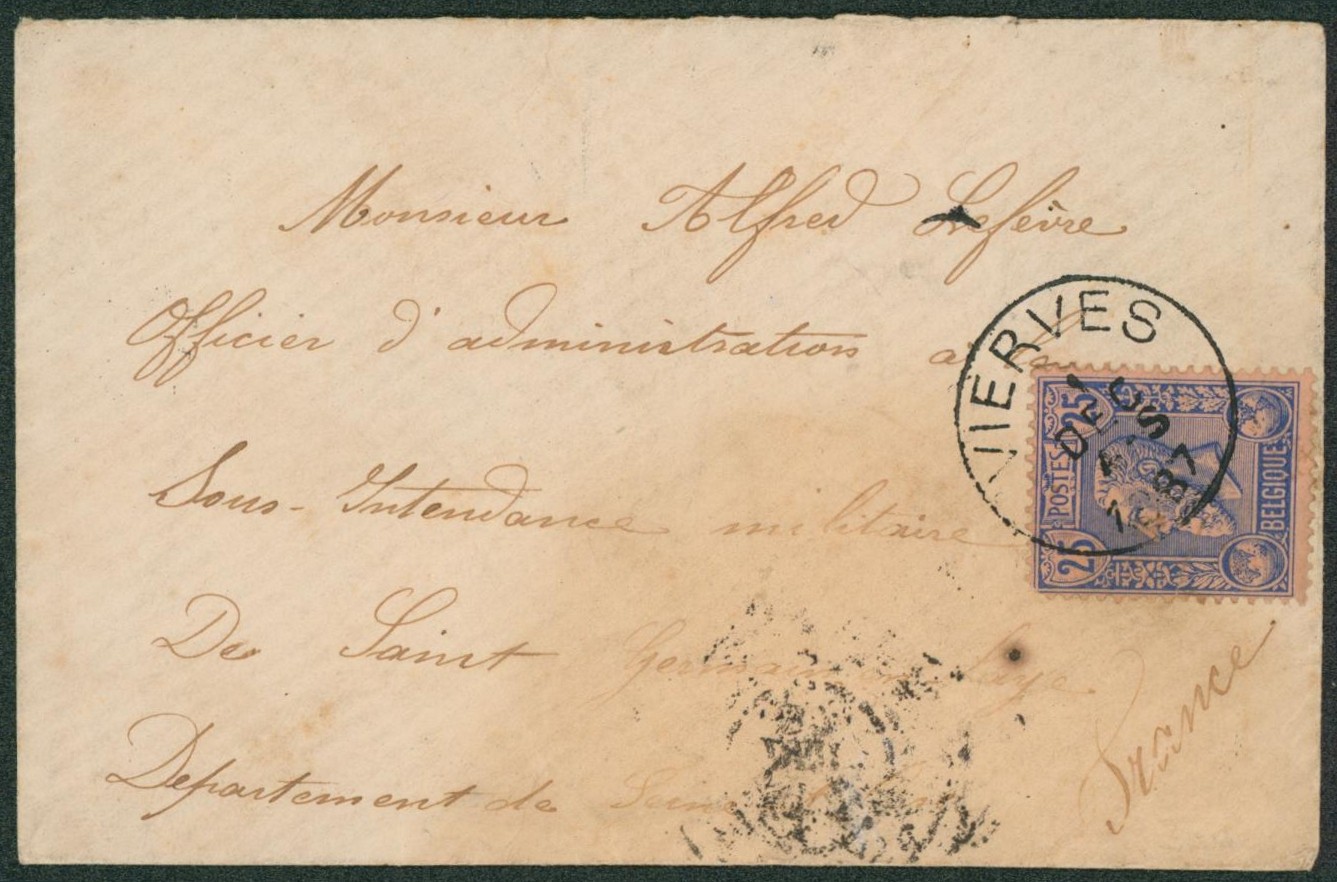 Monsieur Alfred Lefèvre
Officier d'administration à la
Sous-Intendance militaire
De Saint Germain en Laye
Departement de Seine
France
VIERVES
DEC
87
25 POSTES 25
BELGIQUE